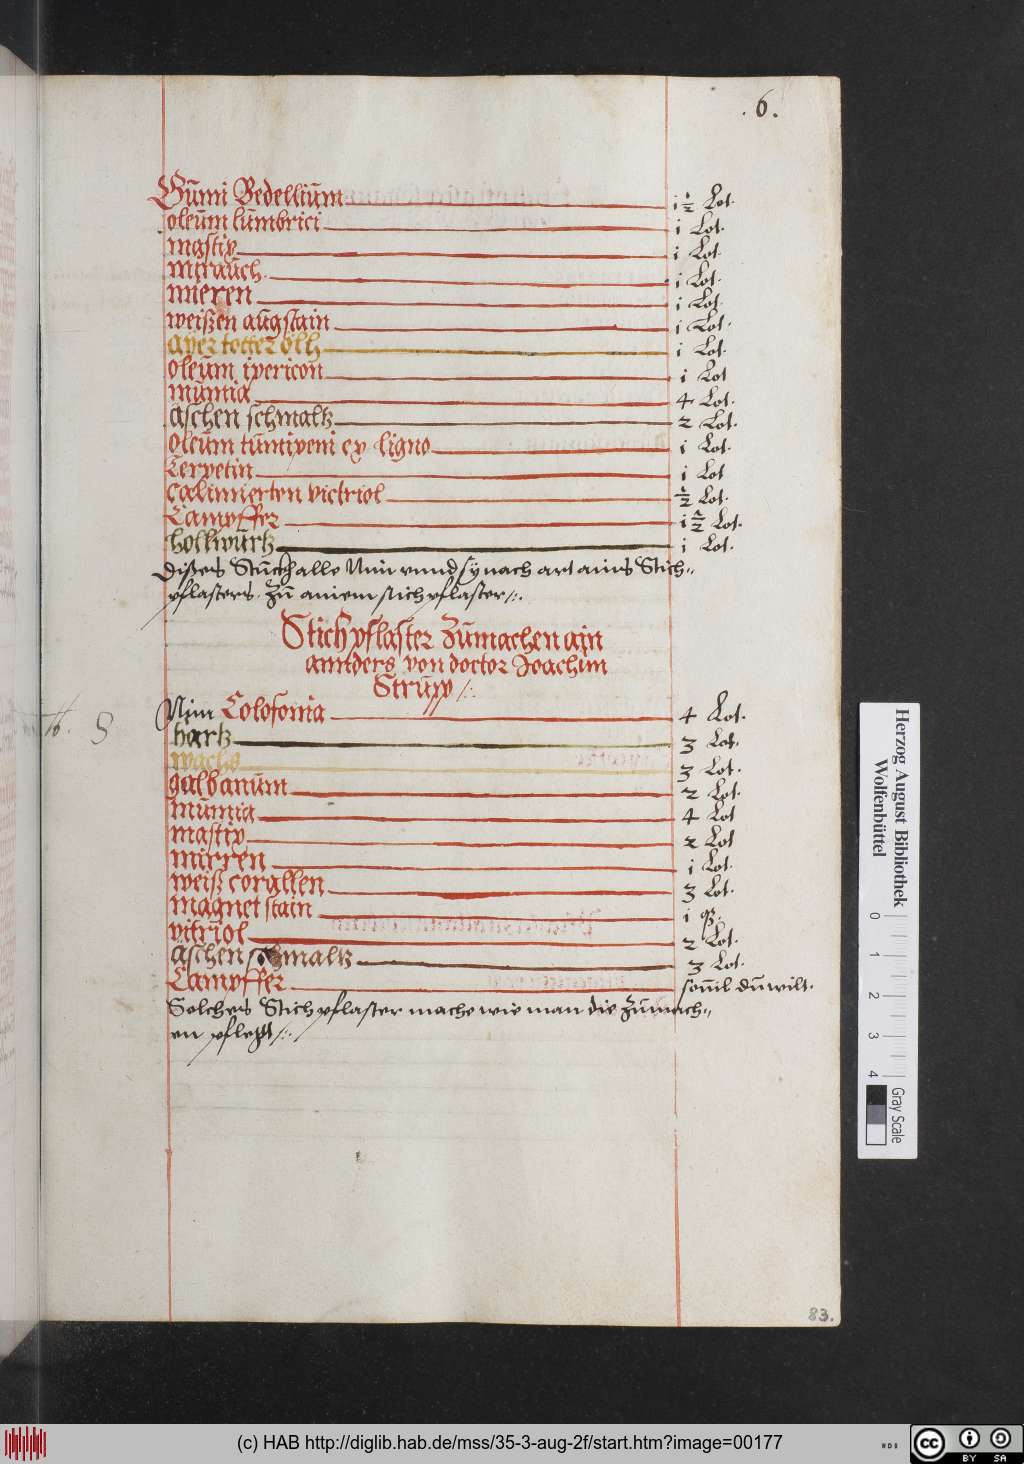 . 6 .
Gŭmi Bedelliŭm i ½ Lot.
oleŭm lŭmbrici i Lot.
mastix i Lot.
miraŭch. i Lot.
mieren i Lot.
weißen aŭgstain i Lot.
ayer totter ölh i Lot.
oleŭm ipericon i Lot
mŭmia 4 Lot.
Äschen schmaltz 2 Lot.
oleŭm iŭnipeni ex ligno i Lot.
Terpetin i Lot
calinierten victriol ½ Lot.
Campffer i ½ Lot.
hollwŭrtz i Lot.
Dißers Stŭckh alle Nim vnnd sy nach art ains Stich„
pflasters. Zŭ ainem stichpflaster/:.
Stichpflaster Zŭmachen ain
annders von doctor Joachim
Strŭpp/:.
8
Nim Colofonia 4 Lot.
hartz 3 Lot.
wachs 3 Lot.
galbanŭm 2 Lot.
mŭmia 4 Lot
mastix 2 Lot
mirren i Lot.
weiß corallen 3 Lot.
magnet stain i q.
vitriol 2 Lot.
Äschen schmaltz 3 Lot.
Campffer souil dŭ wilt.
Solches Stichpflaster mache wie man die Zŭmach„
en pflegt/:.
83.
Herzog August Bibliothek
Wolfenbüttel
0 1 2 3 4
Gray Scale
(c) HAB http://diglib.hab.de/mss/35-3-aug-2f/start.htm?image=00177
cc BY SA